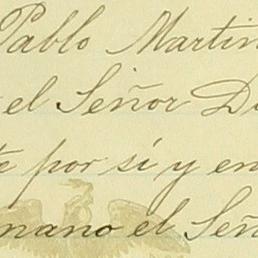 Pablo Martin
el Señor D
te por sí y en
mano el Señ